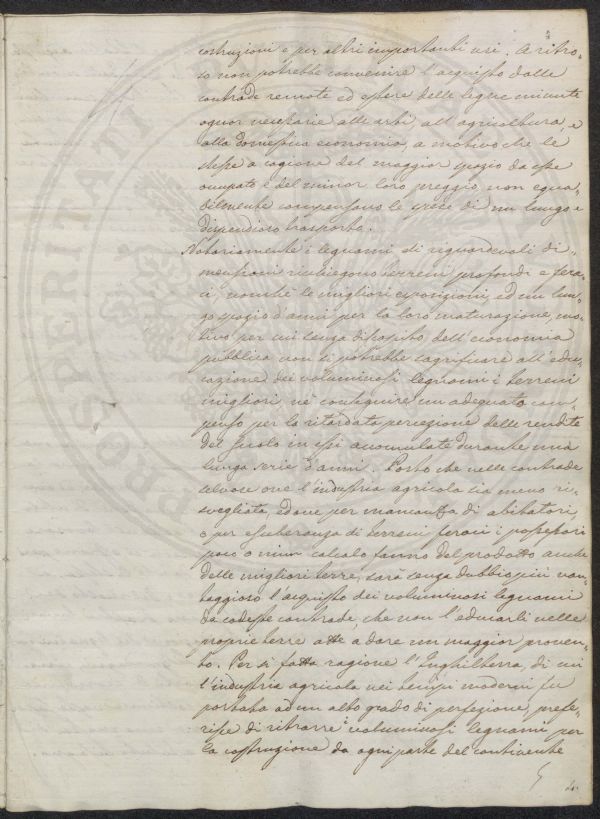 costruzioni e per altri importanti usi. A ritro-
so non potrebbe convenire l'acquisto dalle
contrade remote ed estere delle legne minute
ognor necessarie alle arti, all'agricoltura, e
alla domestica economia, a motivo che le
stesse a cagione del maggior spazio da esse
occupato e del minor loro preggio, non egua-
bilmente compensano le spese di un lungo e
dispendioso trasporto.
Notoriamente i legnami di riguardevoli di-
mensioni richiegono terreni profondi e fera-
ci, nonchè le migliori esposizioni, ed un lun-
go spazio d'anni per la loro maturazione, mo-
tivo per cui senza discapito dell'economia
pubblica non si potrebbe sagrificare all'edu-
cazione dei voluminosi legnami i terreni
migliori, nè conseguire un adeguato com-
penso per la ritardata percezione delle rendite
del suolo in essi accumulate durante una
lunga serie d'anni. Posto che nelle contrade
selvose ove l'industria agricola sia meno ri-
svegliata, ed ove per mancanza di abitatori,
o per esuberanza di terreni feraci i possessori
poco o niun calcolo fanno del prodotto anche
delle migliori terre, sarà senza dubbio più van-
taggioso l'acquisto dei voluminosi legnami
da codeste contrade, che non l'educarli nelle
proprie terre atte a dare un maggior proven-
to. Per sì fatta ragione l'Inghilterra, di cui
l'industria agricola nei tempi moderni fu
portata ad un alto grado di perfezione, prefe-
risse di ritrarre i voluminosi legnami per
la costruzione da ogni parte del continente
PROSPERITATI